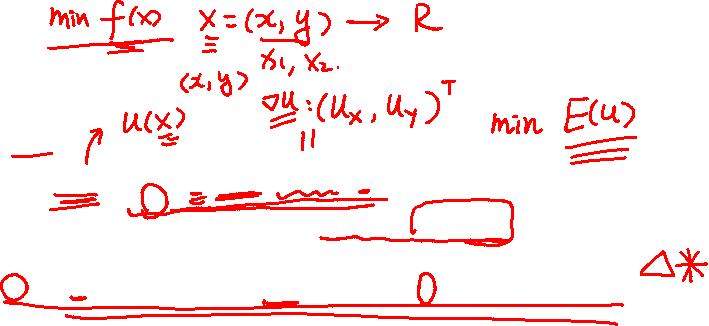 min f(x) x = (x, y) → R
x₁, x₂.
(x, y)
u(x) ∇u : (u_x, u_y)ᵀ min E(u)
=
O =
△*
O O